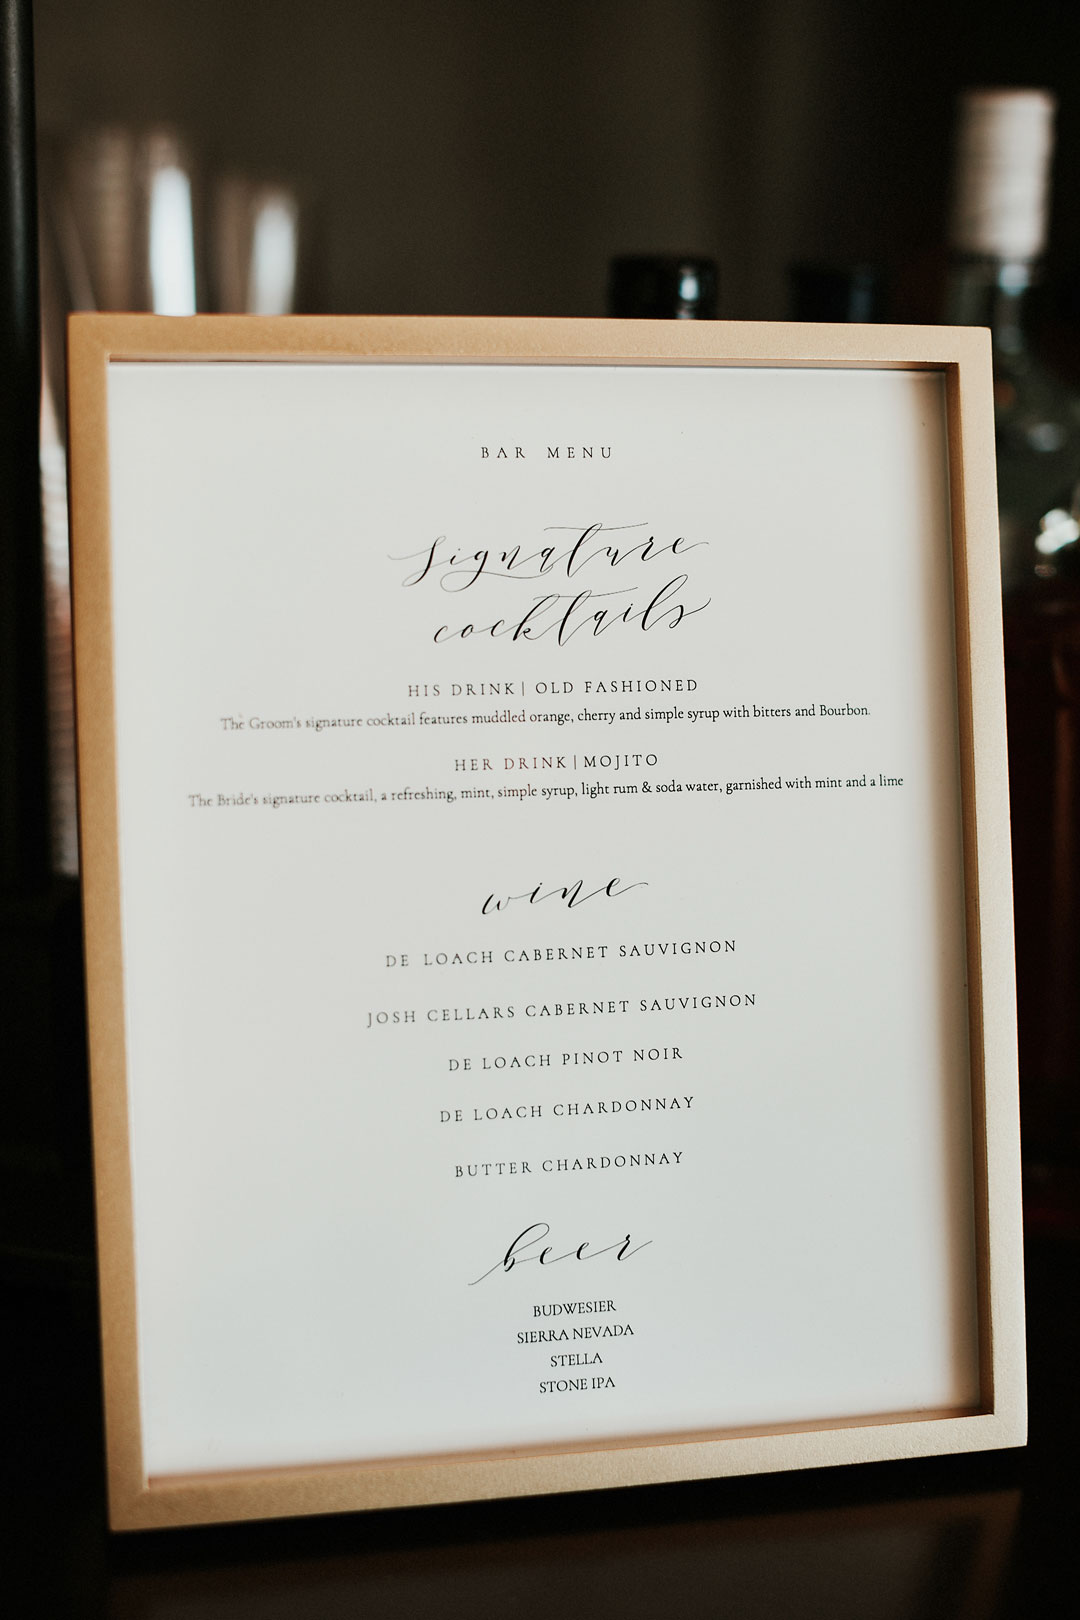 BAR MENU
signature
cocktails
HIS DRINK | OLD FASHIONED
The Groom's signature cocktail features muddled orange, cherry and simple syrup with bitters and Bourbon.
HER DRINK | MOJITO
The Bride's signature cocktail, a refreshing, mint, simple syrup, light rum & soda water, garnished with mint and a lime
wine
DE LOACH CABERNET SAUVIGNON
JOSH CELLARS CABERNET SAUVIGNON
DE LOACH PINOT NOIR
DE LOACH CHARDONNAY
BUTTER CHARDONNAY
beer
BUDWESIER
SIERRA NEVADA
STELLA
STONE IPA